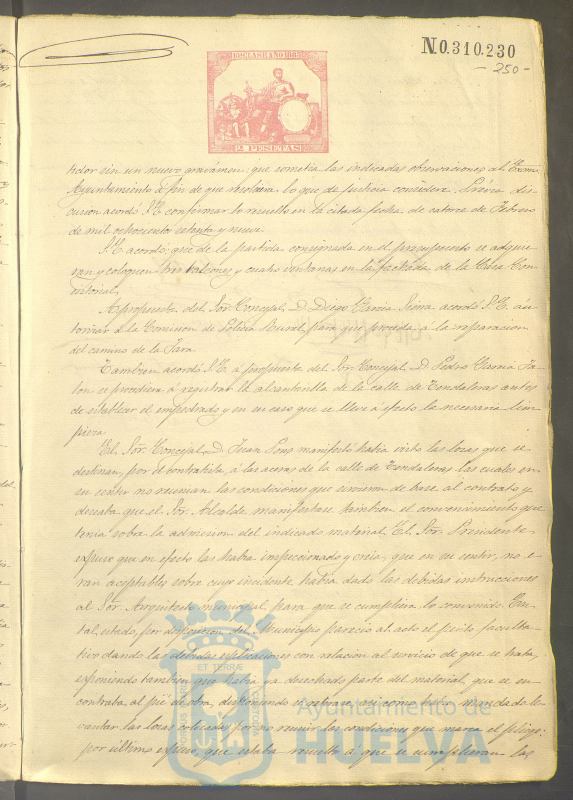 N0.310.230
- 250 -
10º CLASE AÑO 188
2 PESETAS
ticlor sin un nuevo gravámen: que sometia las indicadas observaciones al Exmo
Ayuntamiento a fin de que resolviera lo que de justicia considere. Prévia dis-
cusion acordó S.E. confirmar lo resuelto en la citada fecha de catorce de Febrero
de mil ochocientos setenta y nueve.
S.E. acordó: que de la partida consignada en el presupuesto se adquie-
ran y coloquen tres balcones y cuatro ventanas en la fachada de la Casa Con-
sistorial,
A propuesta del Sor Concejal, D. Diego Garcia Sierra acordó S.E. au-
torizar a la Comision de Policia Rural para que proceda á la reparacion
del camino de la Jara.
Tambien acordó S.E. á propuesta del Sor Concejal D. Pedro Garcia Ja-
lon se procediera á registrar la alcantarilla de la calle de Tendaleras antes
de establecer el empedrado y en su caso que se lleve á efecto la necesaria lim-
pieza.
El Sor Concejal D. Juan Pons manifestó habia visto las lozas que se
destinan, por el contratista, á las aceras de la calle de Tendaleras las cuales en
su sentir no reunian las condiciones que sirvieron de base al contrato y
deseaba que el Sor Alcalde manifestase tambien el convencimiento que
tenia sobre la admision del indicado material. El Sor Presidente
expuso que en efecto las habia inspeccionado y creia, que en su sentir, no e-
ran aceptables sobre cuyo incidente habia dado las debidas instrucciones
al Sor Arquitecto municipal para que se cumpliera lo convenido. En
tal estado, por disposicion del Municipio pareció al acto el perito faculta-
tivo dando las debidas esplicaciones con relacion al servicio de que se trata,
esponiendo tambien que habia ya desechado parte del material, que se en-
contraba al pié de obra, disponiendo se retirase, asi como haber mandado le-
vantar las lozas colocadas por no reunir las condiciones que marca el pliego:
por ultimo espuso, que estaba resuelto á que se cumplieran las
ET TERRÆ
Ayuntamiento de
HUELVA